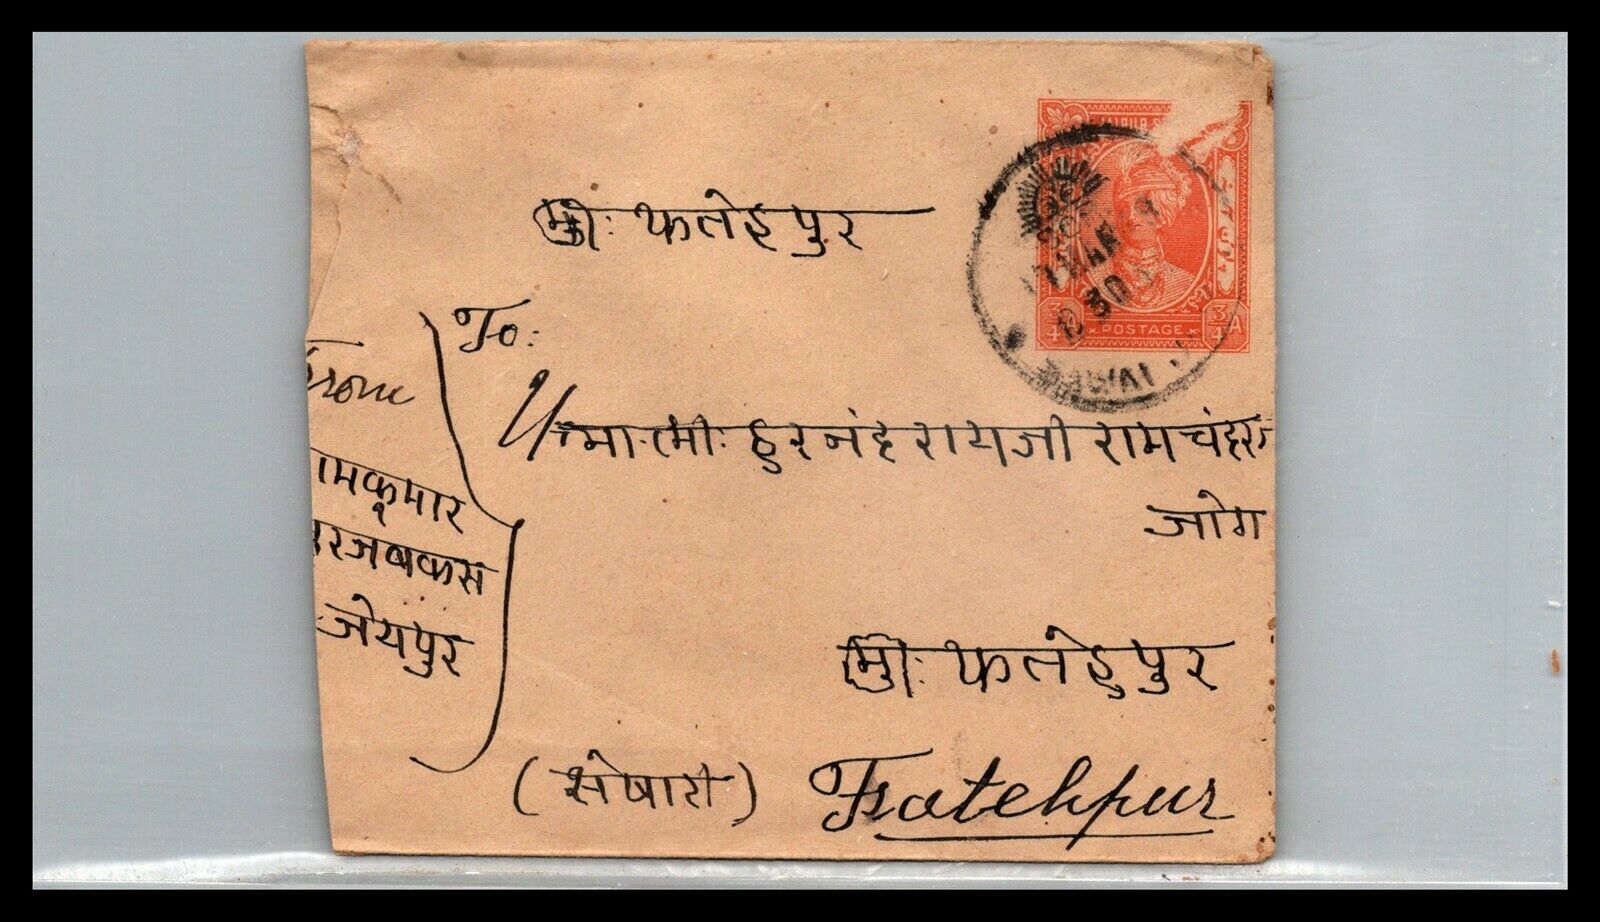 मु॰: फतेहपुर
To:
From
रामकुमार
जेयपुर
हरनंदरायजी रामचंदर
जोग
मु॰: फतेहपुर
(सेषाटी) Fatehpur
POSTAGE
3/4 3/4 A
MAR
30